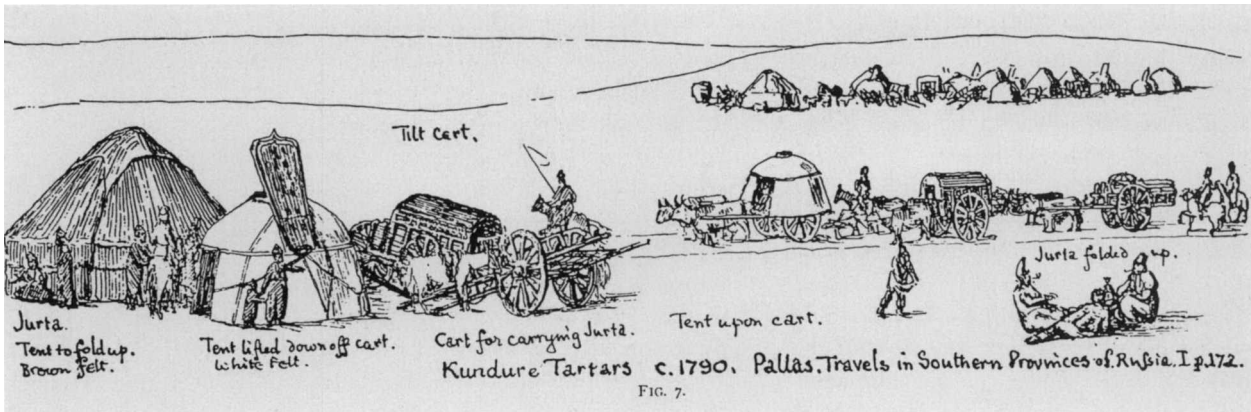 Tilt Cart.
Jurta folded up.
Jurta.
Tent to fold up.
Brown felt.
Tent lifted down off cart.
White felt.
Cart for carrying Jurta.
Tent upon cart.
Kundure Tartars c. 1790. Pallas. Travels in Southern Provinces of. Russia. I p. 172.
FIG. 7.